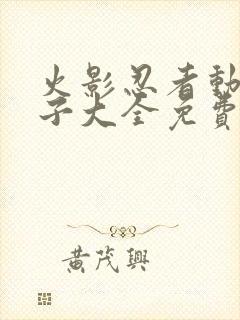 火影忍者動
子大全免費
黃茂興